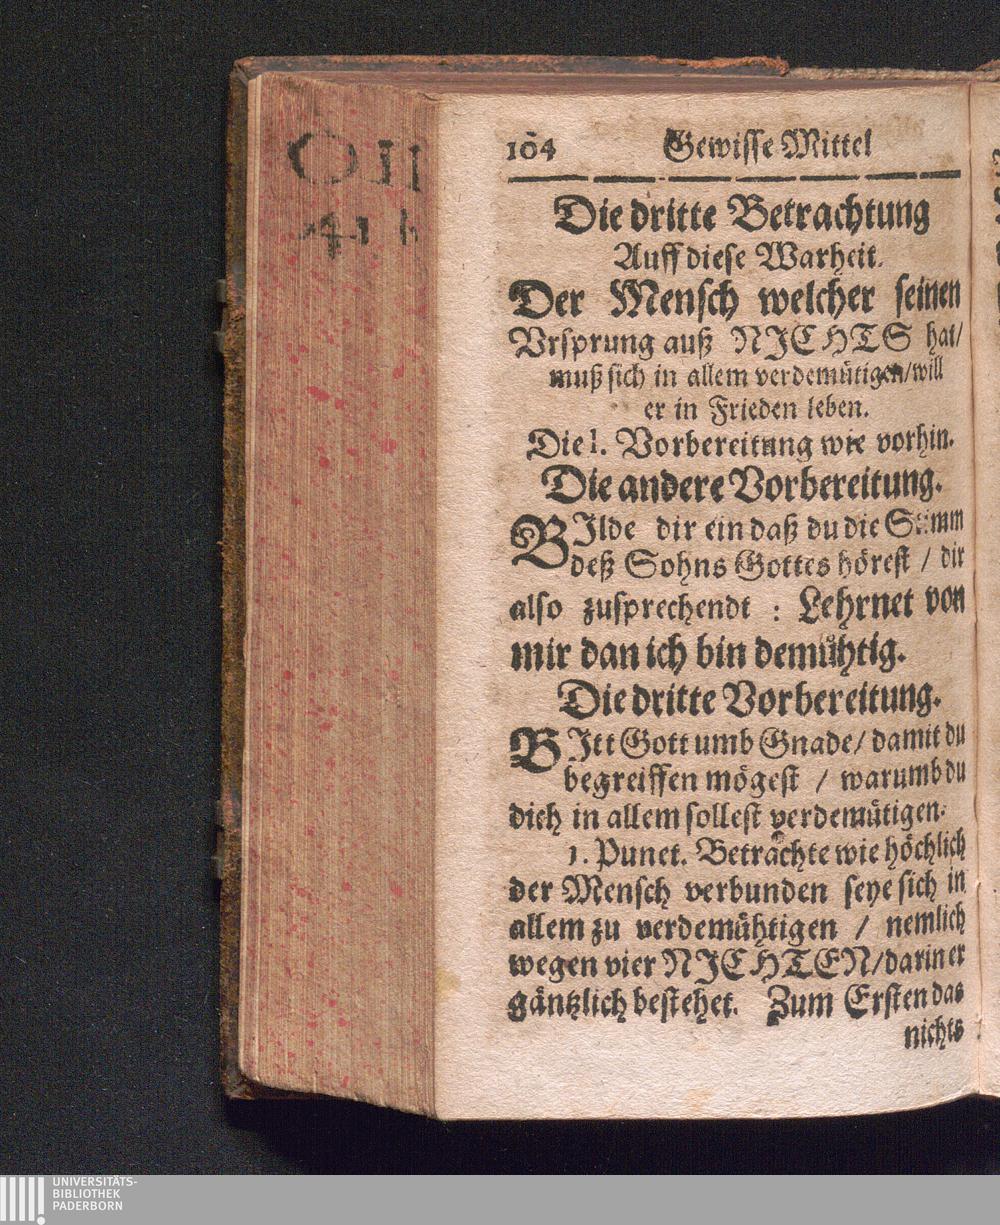 104 Gewisse Mittel
Die dritte Betrachtung
Auff diese Warheit.
Der Mensch welcher seinen
Vrsprung auß NICHTS hat/
muß sich in allem verdemütigen/will
er in Frieden leben.
Die 1. Vorbereitung wie vorhin.
Die andere Vorbereitung.
BIlde dir ein daß du die Stimm
deß Sohns Gottes hörest / dir
also zusprechendt : Lehrnet von
mir dan ich bin demühtig.
Die dritte Vorbereitung.
BItt Gott umb Gnade/ damit du
begreiffen mögest / warumb du
dich in allem sollest verdemütigen.
1. Punct. Betrachte wie höchlich
der Mensch verbunden seye sich in
allem zu verdemühtigen / nemlich
wegen vier NICHTEN/darin er
gäntzlich bestehet. Zum Ersten das
nichts
UNIVERSITÄTS-
BIBLIOTHEK
PADERBORN